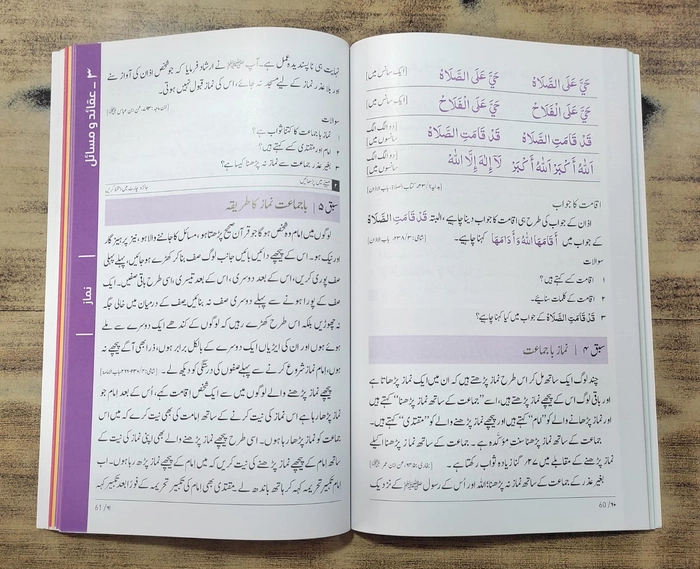 حَيَّ عَلَى الصَّلَاهْ حَيَّ عَلَى الصَّلَاهْ [ایک سانس میں]
حَيَّ عَلَى الْفَلَاحْ حَيَّ عَلَى الْفَلَاحْ [ایک سانس میں]
قَدْ قَامَتِ الصَّلَاهْ قَدْ قَامَتِ الصَّلَاهْ [دو الگ الگ سانسوں میں]
اَللهُ اَكْبَرْ اَللهُ اَكْبَرْ لَآ اِلٰهَ اِلَّا اللهْ [دو الگ الگ سانسوں میں]
اقامت کا جواب
اذان کے جواب کی طرح ہی اقامت کا جواب دینا چاہیے، البتہ قَدْ قَامَتِ الصَّلَاهْ
کے جواب میں اَقَامَهَا اللهُ وَاَدَامَهَا کہنا چاہیے۔
سوالات
۱ اقامت کسے کہتے ہیں؟
۲ اقامت کے کلمات سنائیے۔
۳ قَدْ قَامَتِ الصَّلَاهْ کے جواب میں کیا کہنا چاہیے؟
سبق ۴ | نماز باجماعت
چند لوگ ایک ساتھ مل کر اس طرح نماز پڑھتے ہیں کہ ان میں ایک نماز پڑھاتا ہے
اور باقی لوگ اس کے پیچھے نماز پڑھتے ہیں، اسے ”جماعت کے ساتھ نماز پڑھنا“ کہتے ہیں
اور نماز پڑھانے والے کو ”امام“ کہتے ہیں اور پیچھے نماز پڑھنے والے کو ”مقتدی“ کہتے ہیں۔
جماعت کے ساتھ نماز پڑھنا سنت مؤکدہ ہے۔ جماعت کے ساتھ نماز پڑھنا اکیلے
نماز پڑھنے کے مقابلے میں ۲۷؍ گنا زیادہ ثواب رکھتا ہے۔
بغیر عذر کے جماعت کے ساتھ نماز نہ پڑھنا؛ اللہ اور اُس کے رسول ﷺ کے نزدیک
60 /۶۰
نہایت ہی ناپسندیدہ عمل ہے۔ آپ ﷺ نے ارشاد فرمایا کہ جو شخص اذان کی آواز سنے
اور بلا عذر نماز کے لیے مسجد نہ جائے، اس کی نماز قبول نہیں ہوتی۔
سوالات
۱ نماز باجماعت کا کتنا ثواب ہے؟
۲ امام اور مقتدی کسے کہتے ہیں؟
۳ بغیر عذر جماعت سے نماز نہ پڑھنا کیسا ہے؟
سبق ۵ | باجماعت نماز کا طریقہ
لوگوں میں امام وہ شخص ہوگا جو قرآن صحیح پڑھتا ہو، مسائل کا جاننے والا ہو، نیز پرہیزگار
اور نیک ہو۔ اس کے پیچھے دائیں بائیں جانب لوگ صف بنا کر کھڑے ہوجائیں، پہلے پہلی
صف پوری کریں، اس کے بعد دوسری، اس کے بعد تیسری، اسی طرح باقی صفیں۔ ایک
صف کے پورا ہونے سے پہلے دوسری صف نہ بنائیں، صف کے درمیان میں خالی جگہ
نہ چھوڑیں بلکہ اس طرح کھڑے رہیں کہ لوگوں کے کندھے ایک دوسرے سے ملے
ہوئے ہوں اور ان کی ایڑیاں ایک دوسرے کے بالکل برابر ہوں، ذرا بھی آگے پیچھے نہ
ہوں، امام نماز شروع کرنے سے پہلے صفوں کی درستگی کو دیکھ لے۔
پیچھے نماز پڑھنے والے لوگوں میں سے ایک شخص اقامت کہے، اُس کے بعد امام جو
نماز پڑھا رہا ہے اس نماز کی نیت کرنے کے ساتھ امامت کی بھی نیت کرے کہ میں اس
جماعت کو نماز پڑھا رہا ہوں۔ اسی طرح پیچھے نماز پڑھنے والے بھی اپنی نماز کی نیت کے
ساتھ امام کے پیچھے نماز پڑھنے کی نیت کریں کہ میں امام کے پیچھے نماز پڑھ رہا ہوں۔ اب
امام تکبیر تحریمہ کہہ کر ہاتھ باندھ لے۔ مقتدی بھی امام کی تکبیر تحریمہ کے فوراً بعد تکبیر کہہ
61 /۶۱
۳ ـ عقائد و مسائل
نماز